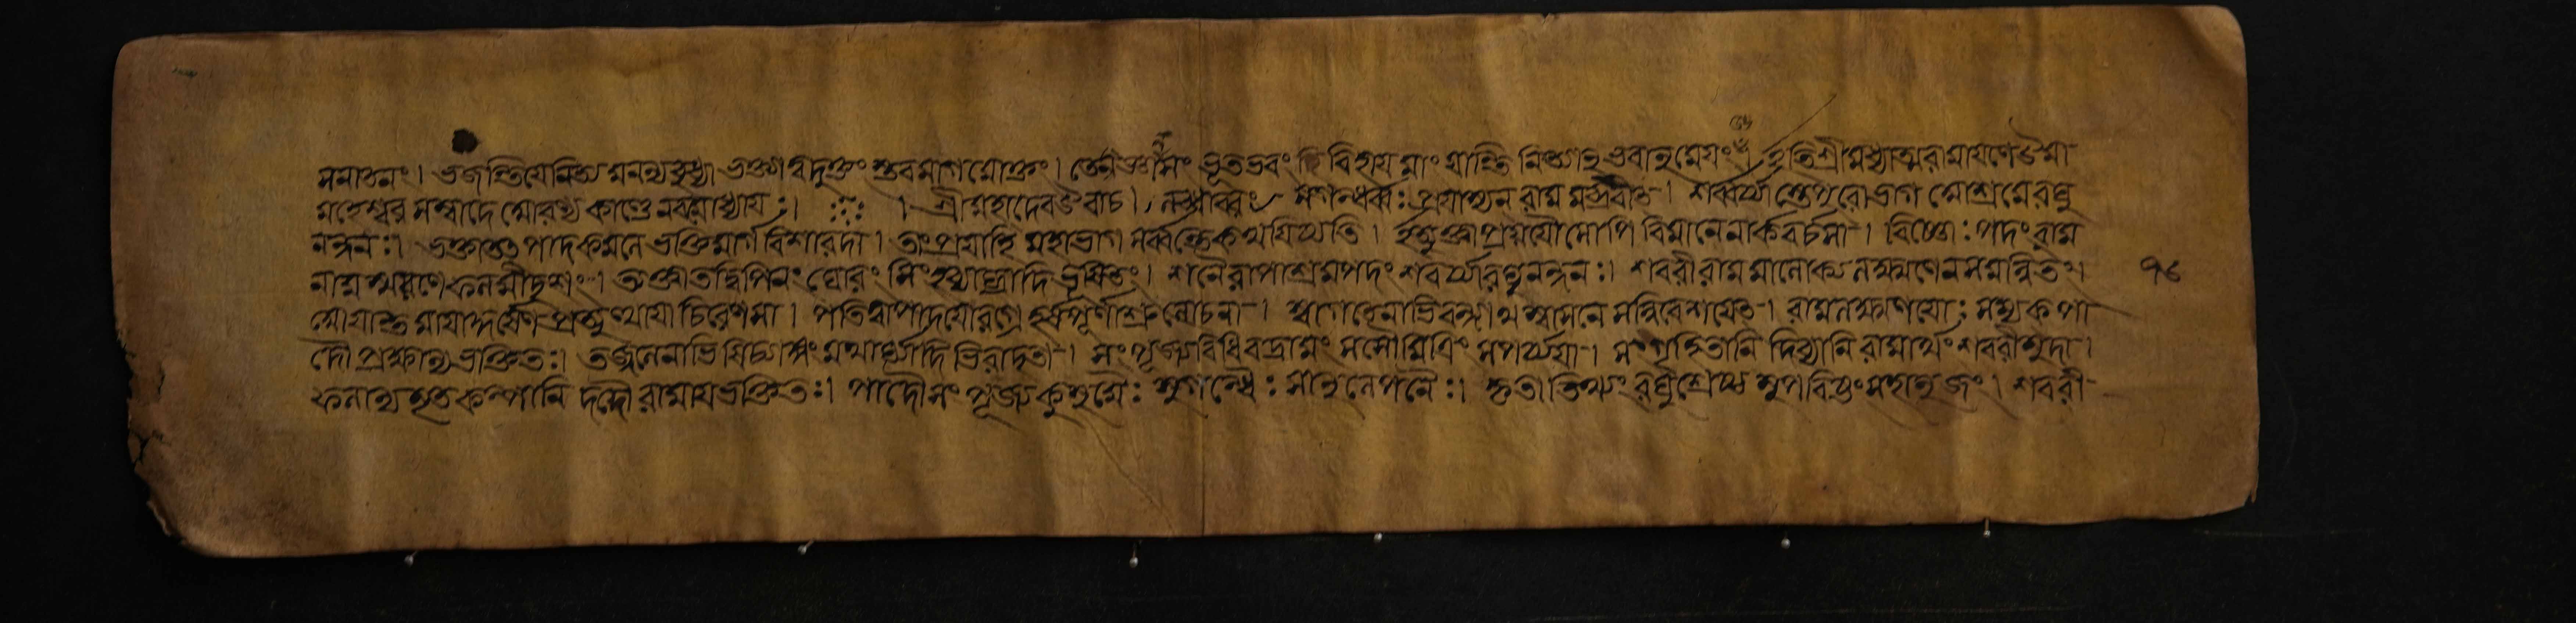 সনাতনং। ভজন্তিযেনিত্য মনন্যবুদ্ধ্যা ভক্ত্যা ত্বদুক্তং স্তবমাগমোক্তং। ভূতভবং বিহায় মাং যান্তি নিত্যানুভবানুমেয়ং ইতিশ্রীমধ্যাত্মরামায়ণেউমা
মহেশ্বর সম্বাদে আরণ্য কাণ্ডে নবমোধ্যায়ঃ। । শ্রীমহাদেবউবাচ। লব্ধাবরং সগন্ধর্ব্বঃ প্রযাস্যন রাম মব্রবীৎ। শবর্য্যাস্তেপুরোভাগ আশ্রমেরঘু
নন্দনঃ। ভক্ত্যাত্বৎ পাদকমলে ভক্তিমার্গ বিশারদা। তংপ্রযাহি মহাভাগ সর্ব্বন্তেকথয়িষ্যতি। ইত্যুক্ত্বাপ্রযযৌসোপি বিমানেনার্কবর্চসা। বিষ্ণোঃ পদং রাম
নাম স্মরণে ফলমীদৃশং। ত্যক্ত্বাতদ্বিপিনং ঘোরং সিংহব্যাঘ্রাদি দূষিতং। শনৈরাপাশ্রমপদং শবর্য্যারঘুনন্দনঃ। শবরীরামমালোক্য লক্ষ্মণেনসমন্বিতং। ৭৫
আয়ান্ত মারাদ্ধর্ষেণ প্রত্যুত্থায়া চিরেণসা। পতিত্বাপাদয়োরগ্রে হর্ষপূর্ণাশ্রুলোচনা। স্বাগতেনাভিবন্দ্যাথ স্বাসনে সন্নিবেশয়েৎ। রামলক্ষ্মণয়োঃ সম্যক পা
দৌ প্রক্ষাল্য ভক্তিতঃ। তজ্জলেনাভি ষিচ্যাঙ্গং মথার্ঘ্যাদি ভিরাদৃতা। সংপূজ্যবিধিবদ্রামং সসৌমিত্রিং সপর্য্যয়া। সংগৃহিতানি দিব্যানি রামার্থং শবরীমুদা।
ফলান্য মৃতকল্পানি দদৌ রামায়ভক্তিতঃ। পাদৌসং পূজ্য কুসুমৈঃ সুগন্ধৈঃ সানুলেপনৈঃ। কৃতাতিথ্যং রঘুশ্রেষ্ঠ মুপবিষ্টং সহানুজং। শবরী